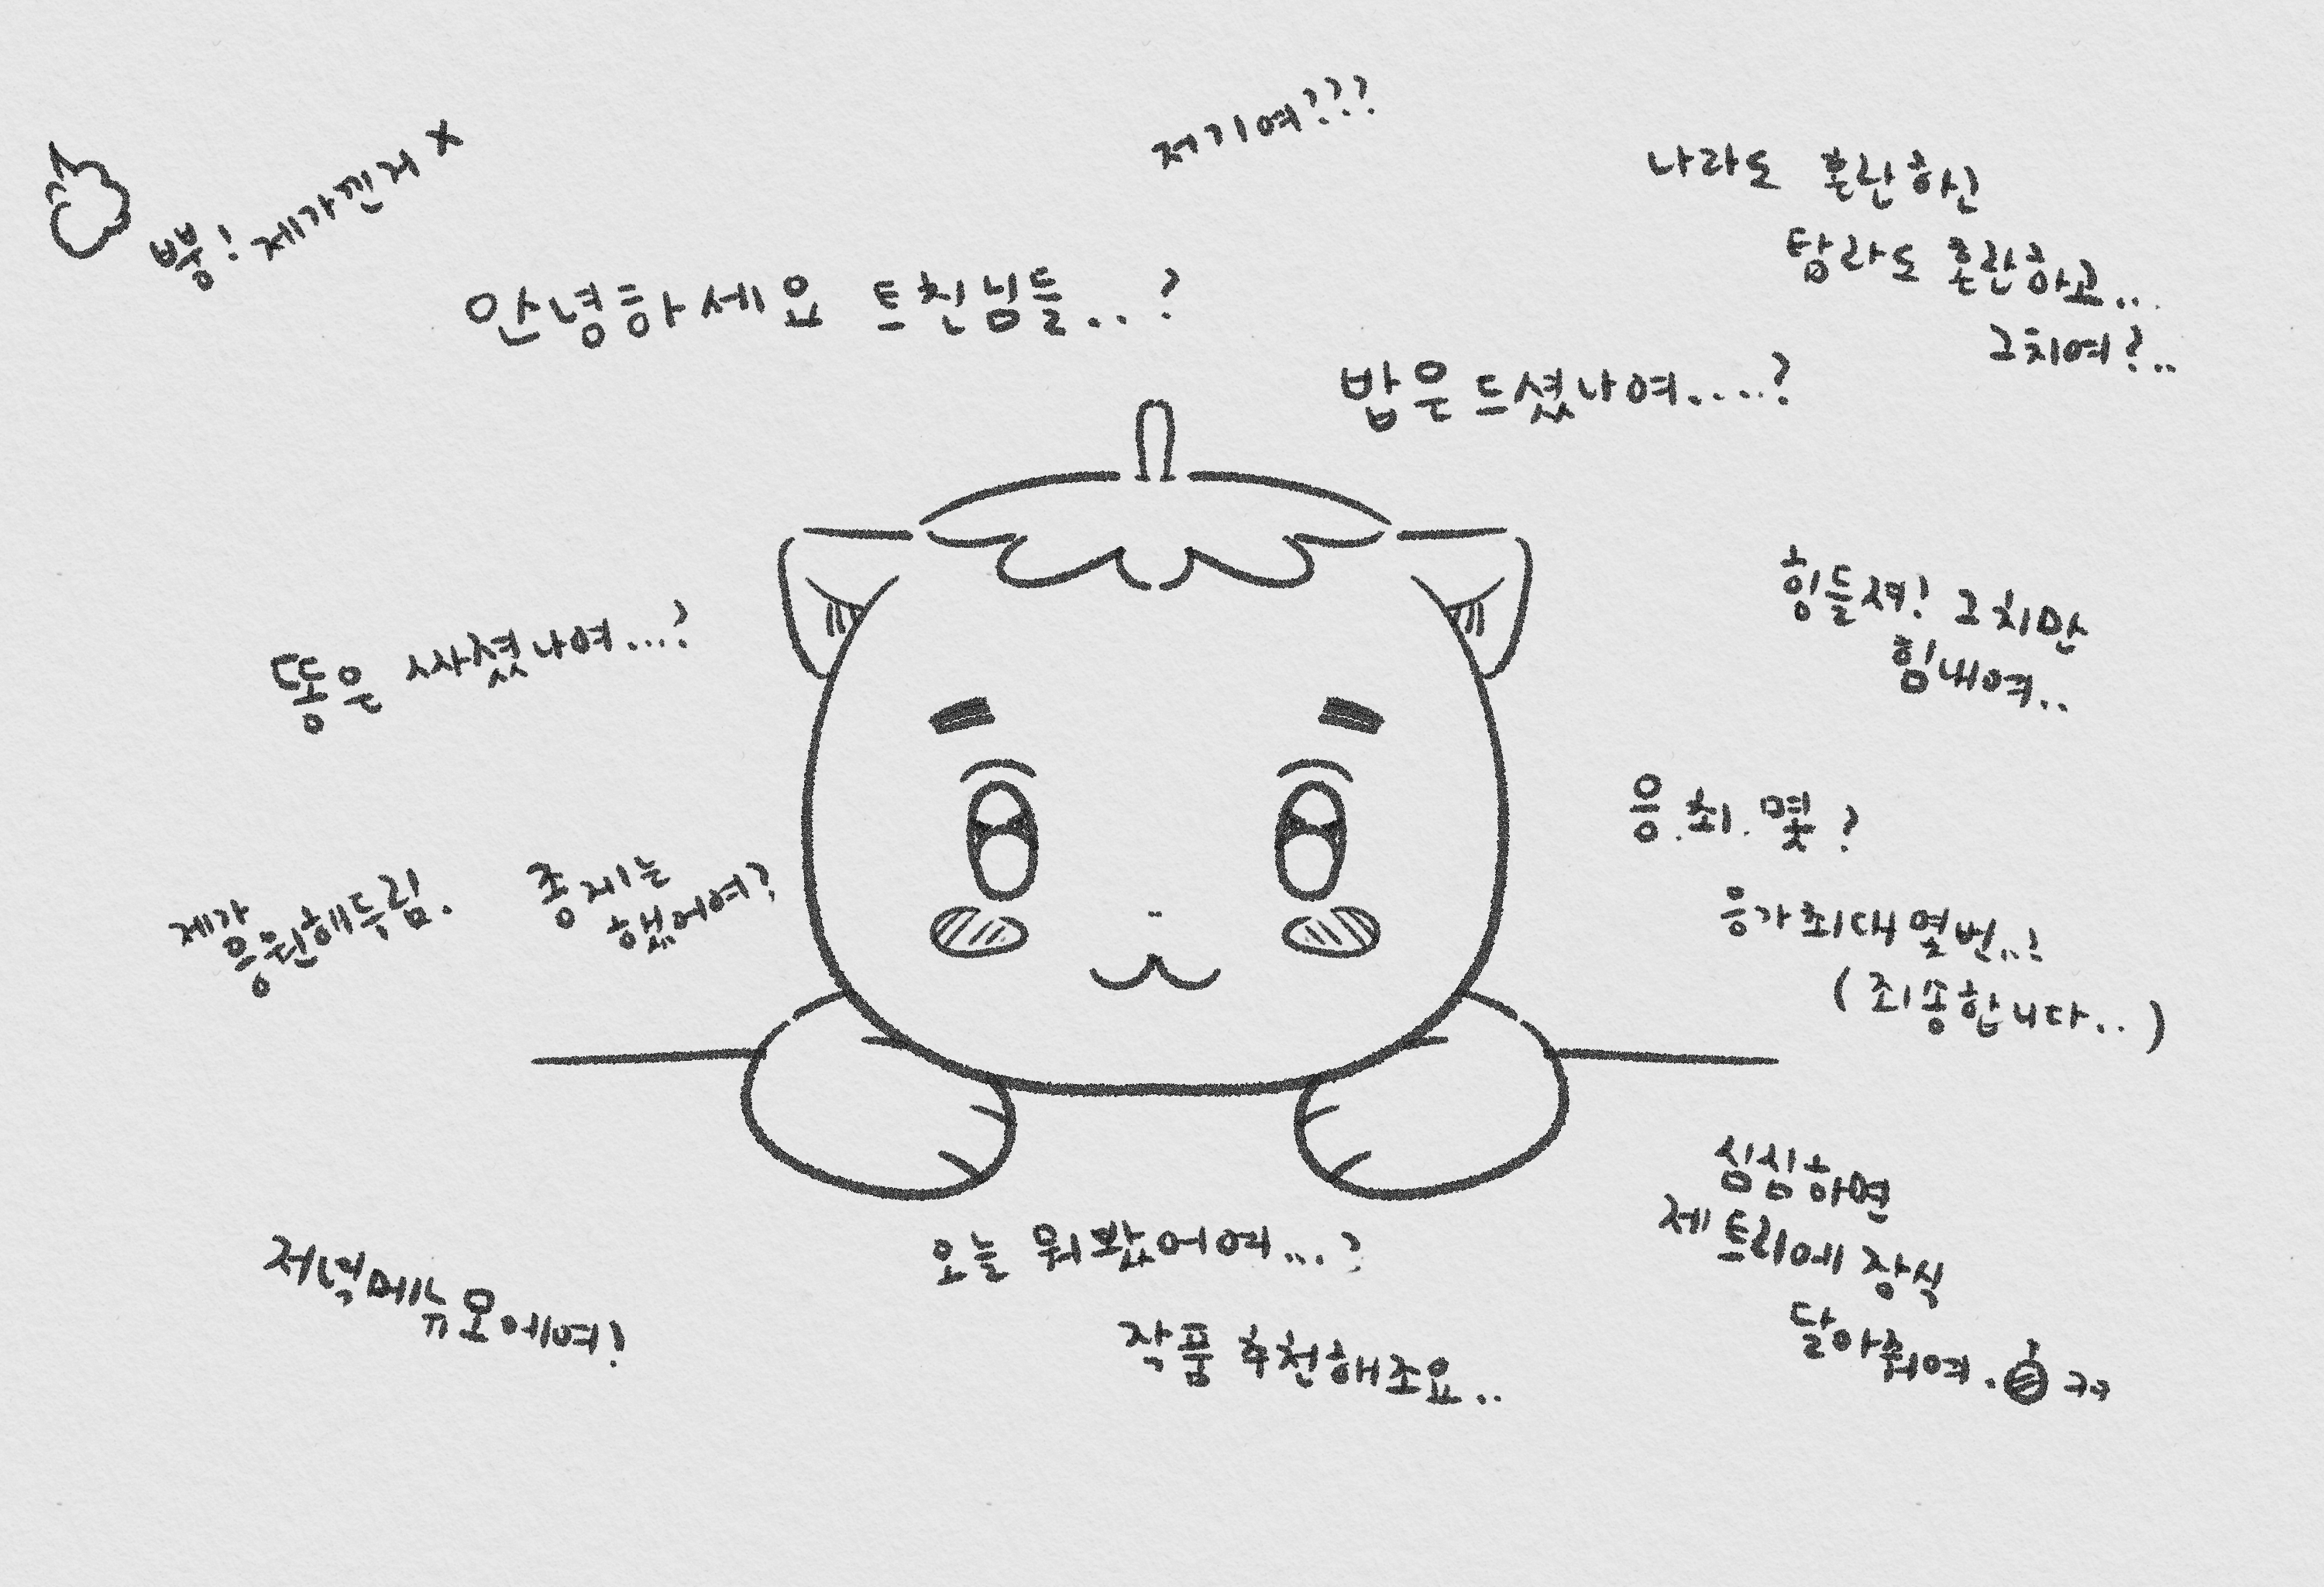 저기여???
뿡! 제가낀거 x
나라도 혼란하신
탐라도 혼란하고..
그치여?..
안녕하세요 트친님들..?
밥은드셨나여....?
힘들셔! 그치만
힘내여..
똥은 싸셨나여...?
응.최.몇?
제가
응원해두림.
종제는
했어여?
응가최대몇번..!
(죄송합니다..)
심심하면
제트리에 장식
달아줘여.
저녁메뉴모에여?
오늘 뭐봤어여...?
작품 추천해조요..